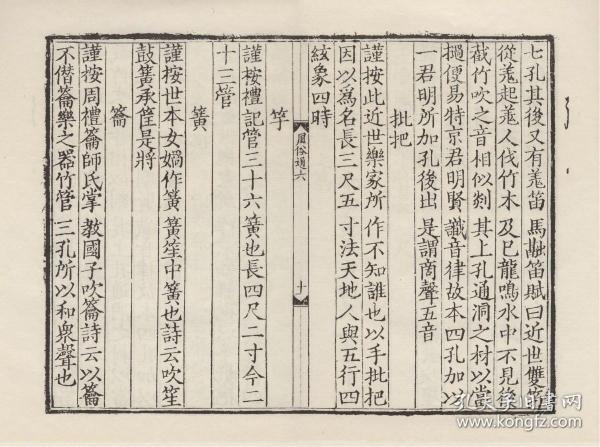 七孔其後又有羗笛馬融笛賦曰近世雙笛
從羗起羗人伐竹木及巳龍鳴水中不見後
截竹吹之音相似剡其上孔通洞之材以當
撾便易特京君明賢識音律故本四孔加以
一君明所加孔後出是謂商聲五音
批把
謹按此近世樂家所作不知誰也以手批把
因以爲名長三尺五寸法天地人與五行四
絃象四時
風俗通六
十
竽
謹按禮記管三十六簧也長四尺二寸今二
十三管
簧
謹按世本女媧作簧簧笙中簧也詩云吹笙
鼓簧承筐是將
籥
謹按周禮籥師氏掌教國子吹籥詩云以籥
不僭籥樂之器竹管三孔所以和衆聲也
孔夫子旧书网